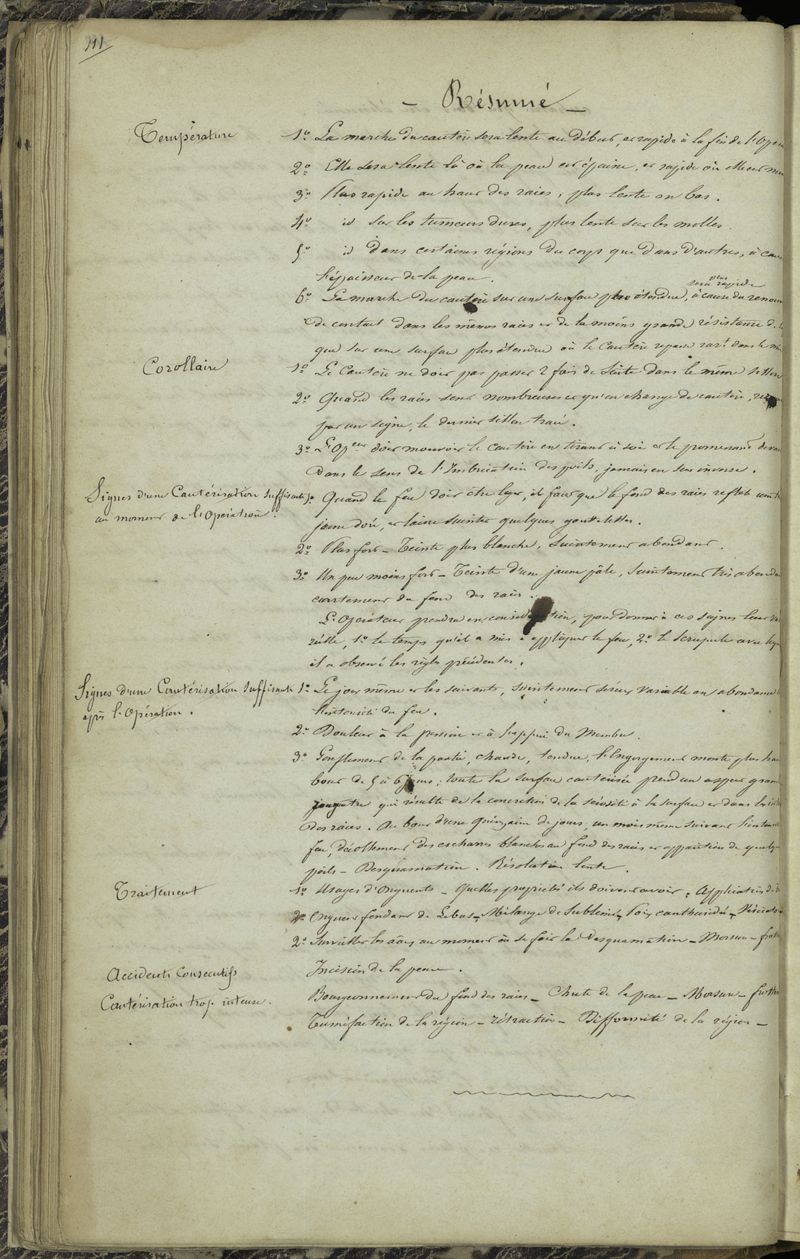 111
— Résumé —
Température 1º La marche du cautère sera lente au début, et rapide à la fin de l'Opé
2º Elle sera lente là où la peau est épaisse, et rapide où elle est min
3º Plus rapide au haut des raies, plus lente en bas.
4º id sur les tumeurs dures, plus lente sur les molles.
5º id dans certaines régions du corps que dans d'autres, à cau
l'épaisseur de la peau.
sera plus rapide
6º La marche du cautère sur une surface peu étendue, à cause du renou
de contact dans les mêmes raies et de la moins grande résistance de
que sur une surface plus étendue où le Cautère repasse rart dans le mê
Corollaire 1º Le Cautère ne doit pas passer 2 fois de suite dans le même sillon
2º Quand les raies sont nombreuses et qu'on change de cautère,
par un signe, le dernier sillon tracé.
3º L'Opeur doit mouvoir le cautère en tirant à soi et le promenant
dans le sens de l'Imbrication des poils, jamais en sens inverse.
Signes d'une Cautérisation suffisante 1º Quand le feu doit être léger, il faut que le fond des raies reflète une
au moment de l'Opération. jaune doré, et laisse suinter quelques gouttelettes.
2º Plus fort – Teinte plus blanche, suintement abondant.
3º Un peu moins fort – Teinte d'un jaune pâle, suintement très abonda
au fond des raies.
L'Opérateur prendra en considération, pour donner à ces signes leur
1º le temps qu'il a mis à appliquer le feu, 2º le scrupule avec
il a observé les règles précédentes.
Signes d'une Cautérisation suffisante 1º Le jour même et les suivants, suintement séreux variable en abondance
après l'Opération. l'intensité du feu.
2º Douleur à la pression et à l'appui du Membre.
3º Gonflement de la partie, chaude, tendue, l'Engorgement monte plus hau
bout de 5 à 6 jours; toute la surface cautérisée prend un aspect
qui résulte de la concrétion de la sérosité à la surface et dans
des raies. Au bout d'une quinzaine de jours, un mois même suivant l'inten
feu, décollement des escharres blanches au fond des raies et apparition de quelq
poils – Desquamation. Résolution lente.
Traitement 1º Usages d'Onguents – Quelles propriétés ils doivent avoir. Application
Onguent fondant de Lebas – Mélange de Sublimé, Poix cantharidée – Vésicatoi
2º Surveiller les ânes au moment où se fait la Desquamation – Morsure – frott
Accidents Consécutifs Incision de la peau.
Cautérisation trop intense. Bourgeonnement du fond des raies – Chute de la peau – Morsure – frotte
Tuméfaction de la région – rétraction – Difformité de la région –